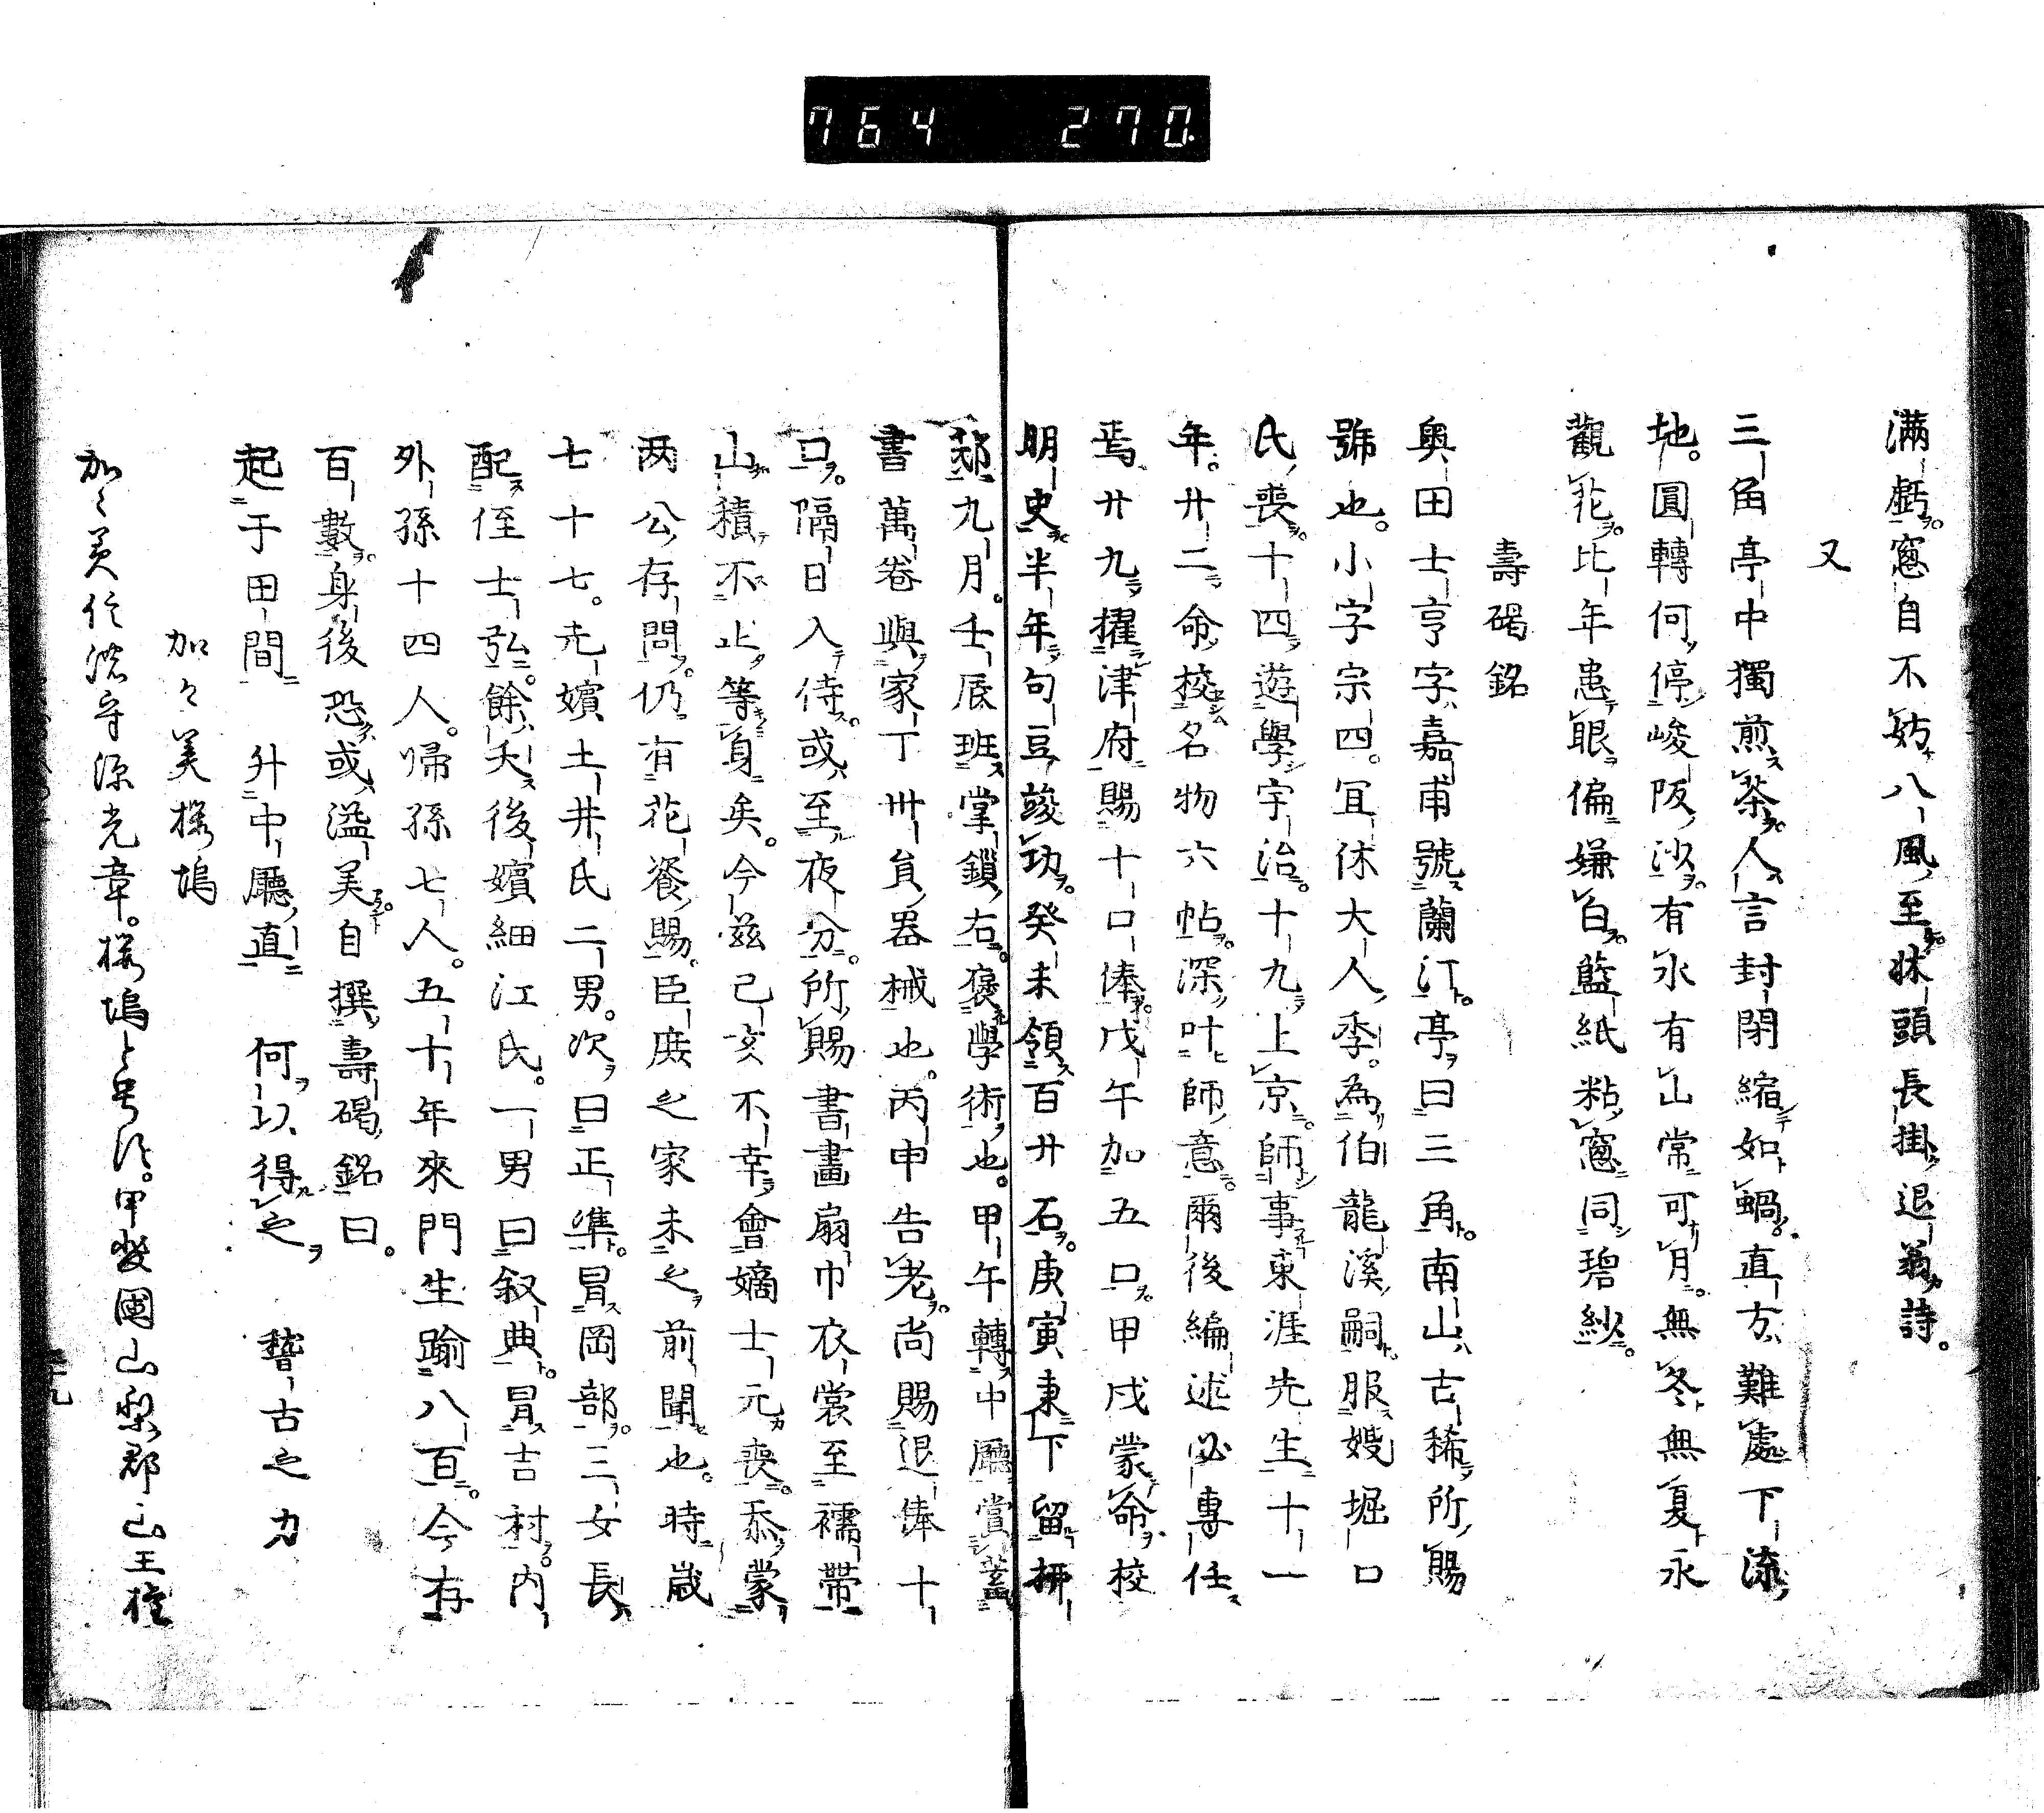 764 270
滿虧窓自不妨八風至牀頭長掛退翁詩
又
三角亭中獨煎茶人言封閉縮如蝸直方難處下流
地圓轉何停峻阪沙有水有山常可月無冬無夏永
觀花比年患眼偏嫌白藍紙粘窓同碧紗
壽碣銘
奥田士亨字嘉甫號蘭汀亭曰三角南山古稀所賜
號也小字宗四冝休大人季為伯龍溪嗣服嫂堀口
氏喪十四遊學宇治十九上京師事東涯先生十一
年廿二命校名物六帖深叶師意爾後編述必專任
焉廿九擢津府賜十口俸戊午加五口甲戌蒙命校
明史半年句豆竣功癸未領百廿石庚寅東下留柳
邸九月壬辰班掌鎖右褒學術也甲午轉中廳賞蓋
書萬卷與家丁卅貟器械也丙申告老尚賜退俸十
口隔日入侍或至夜分所賜書畫扇巾衣裳至襦帶
山積不止等身矣今茲己亥不幸會嫡士元喪忝蒙
两公存問仍有花餈賜臣庶之家未之前聞也時歳
七十七先嬪土井氏二男次曰正準冒岡部三女長
配侄士弘餘夭後嬪細江氏一男曰叙典冒吉村内
外孫十四人帰孫七人五十年來門生踰八百今存
百數身後恐或溢美自撰壽碣銘曰
起于田間 升中廳直 何以得之 稽古之力
加々美櫻塢
加々美信濃守源光章櫻塢と号す甲斐國山梨郡山王権